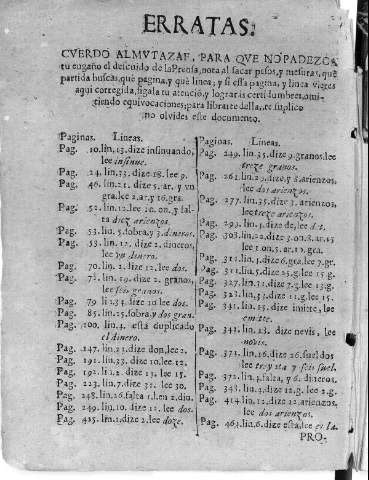 ERRATAS.
CVERDO ALMVTAZAF, PARA QVE NO PADEZCA
tu engaño el descuido de la Prensa, nota al sacar pesos, y mesuras, què
partida buscas, què pagina, y què linea; y si essa pagina, y linea vieres
aqui corregida, sigala tu atenció, y lograràs certidumbres, omi-
tiendo equivocaciones; para librarte dellas, te suplico
no olvides este documento.
Paginas. Lineas.
Pag. 10. lin. 13. dize insinuando,
lee insinue.
Pag. 24. lin. 33. dize 18. lee 9.
Pag. 46. lin. 21. dize 5. ar. y vn
gra. lee 2. ar. y 16. gra.
Pag. 52. lin. 12. lee 10. on. y fal-
ta diez arienzos.
Pag. 53. lin. 5. sobra, y 3. dineros.
Pag. 53. lin. 17. dize 2. dineros,
lee vn dinero.
Pag. 70. lin. 2. dize 12. lee dos.
Pag. 78. lin. 19. dize 2. granos,
lee seis granos.
Pag. 79. lin. 34. dize 10. lee doze.
Pag. 85. lin. 25. sobra, y dos gran.
Pag. 100. lin. 4. està duplicado
el dinero.
Pag. 147. lin. 23. dize don, lee 2.
Pag. 191. lin. 33. dize 10. lee 12.
Pag. 192. lin. 2. dize 13. lee 15.
Pag. 223. lin. 7. dize 31. lee 30.
Pag. 248. lin. 26. falta 1. l. en 2. din.
Pag. 249. lin. 10. dize 11. lee doze.
Pag. 425. lin. 1. dize dos, lee doze.
Paginas. Lineas.
Pag. 249. lin. 35. dize 9. granos, lee
treze granos.
Pag. 262. lin. 29. dize, y 8. arienzos,
lee dos arienzos.
Pag. 277. lin. 35. dize 7. arienzos,
lee treze arienzos.
Pag. 293. lin. 3. dize de, lee d 2.
Pag. 303. lin. 20. dize 3. on. 8. ar. 15
lee 1. on. 5. ar. 12. gra.
Pag. 311. lin. 5. dize 6. gra. lee 7. gr.
Pag. 311. lin. 5. dize 23. g. lee 15. g.
Pag. 327. lin. 31. dize 7. g. lee 13. g.
Pag. 328. lin. 33. dize 11. g. lee 15.
Pag. 341. lin. 15. dize imitte, lee
emitte.
Pag. 343. lin. 23. dize nevis, lee
novis.
Pag. 371. lin. 16. dize 26. sueldos
lee treynta y seis suel.
Pag. 372. lin. 4. falta, y 6. dineros.
Pag. 348. lin. 4. dize 12. g. lee 2. g.
Pag. 414. lin. 12. dize 12. arienzos,
lee dos arienzos.
Pag. 463. lin. 6. dize esta, lee es la.
PRO-